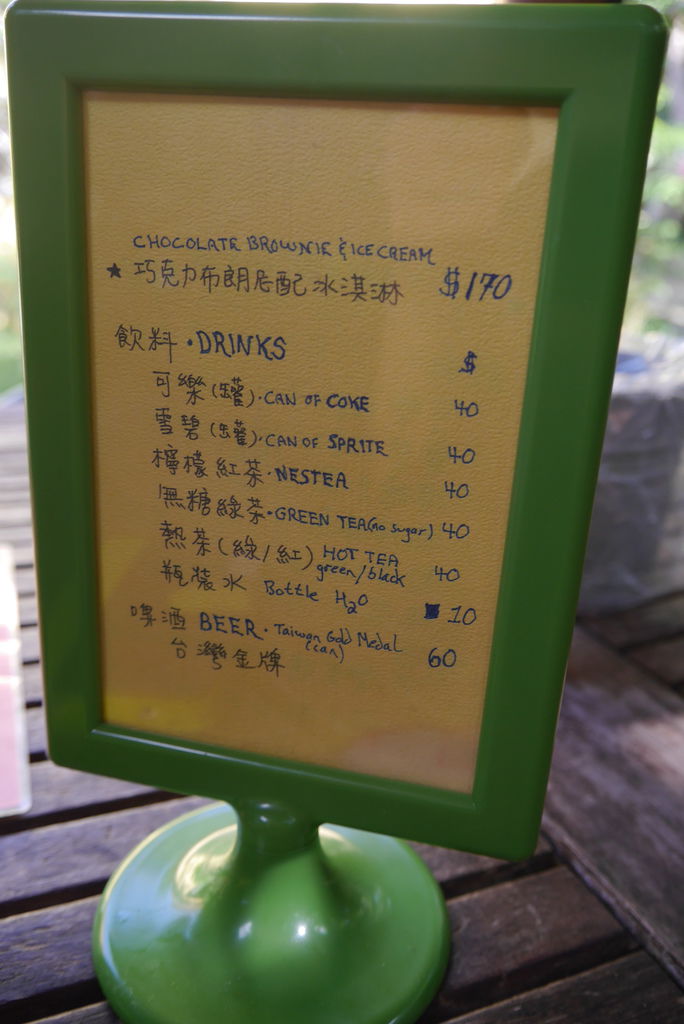 CHOCOLATE BROWNIE & ICE CREAM
★ 巧克力布朗尼配冰淇淋 $170
飲料 • DRINKS $
可樂(罐) • CAN OF COKE 40
雪碧(罐) • CAN OF SPRITE 40
檸檬紅茶 • NESTEA 40
無糖綠茶 • GREEN TEA (no sugar) 40
熱茶(綠/紅) HOT TEA green/black 40
瓶裝水 Bottle H2O 10
啤酒 BEER • Taiwan Gold Medal (can) 60
台灣金牌